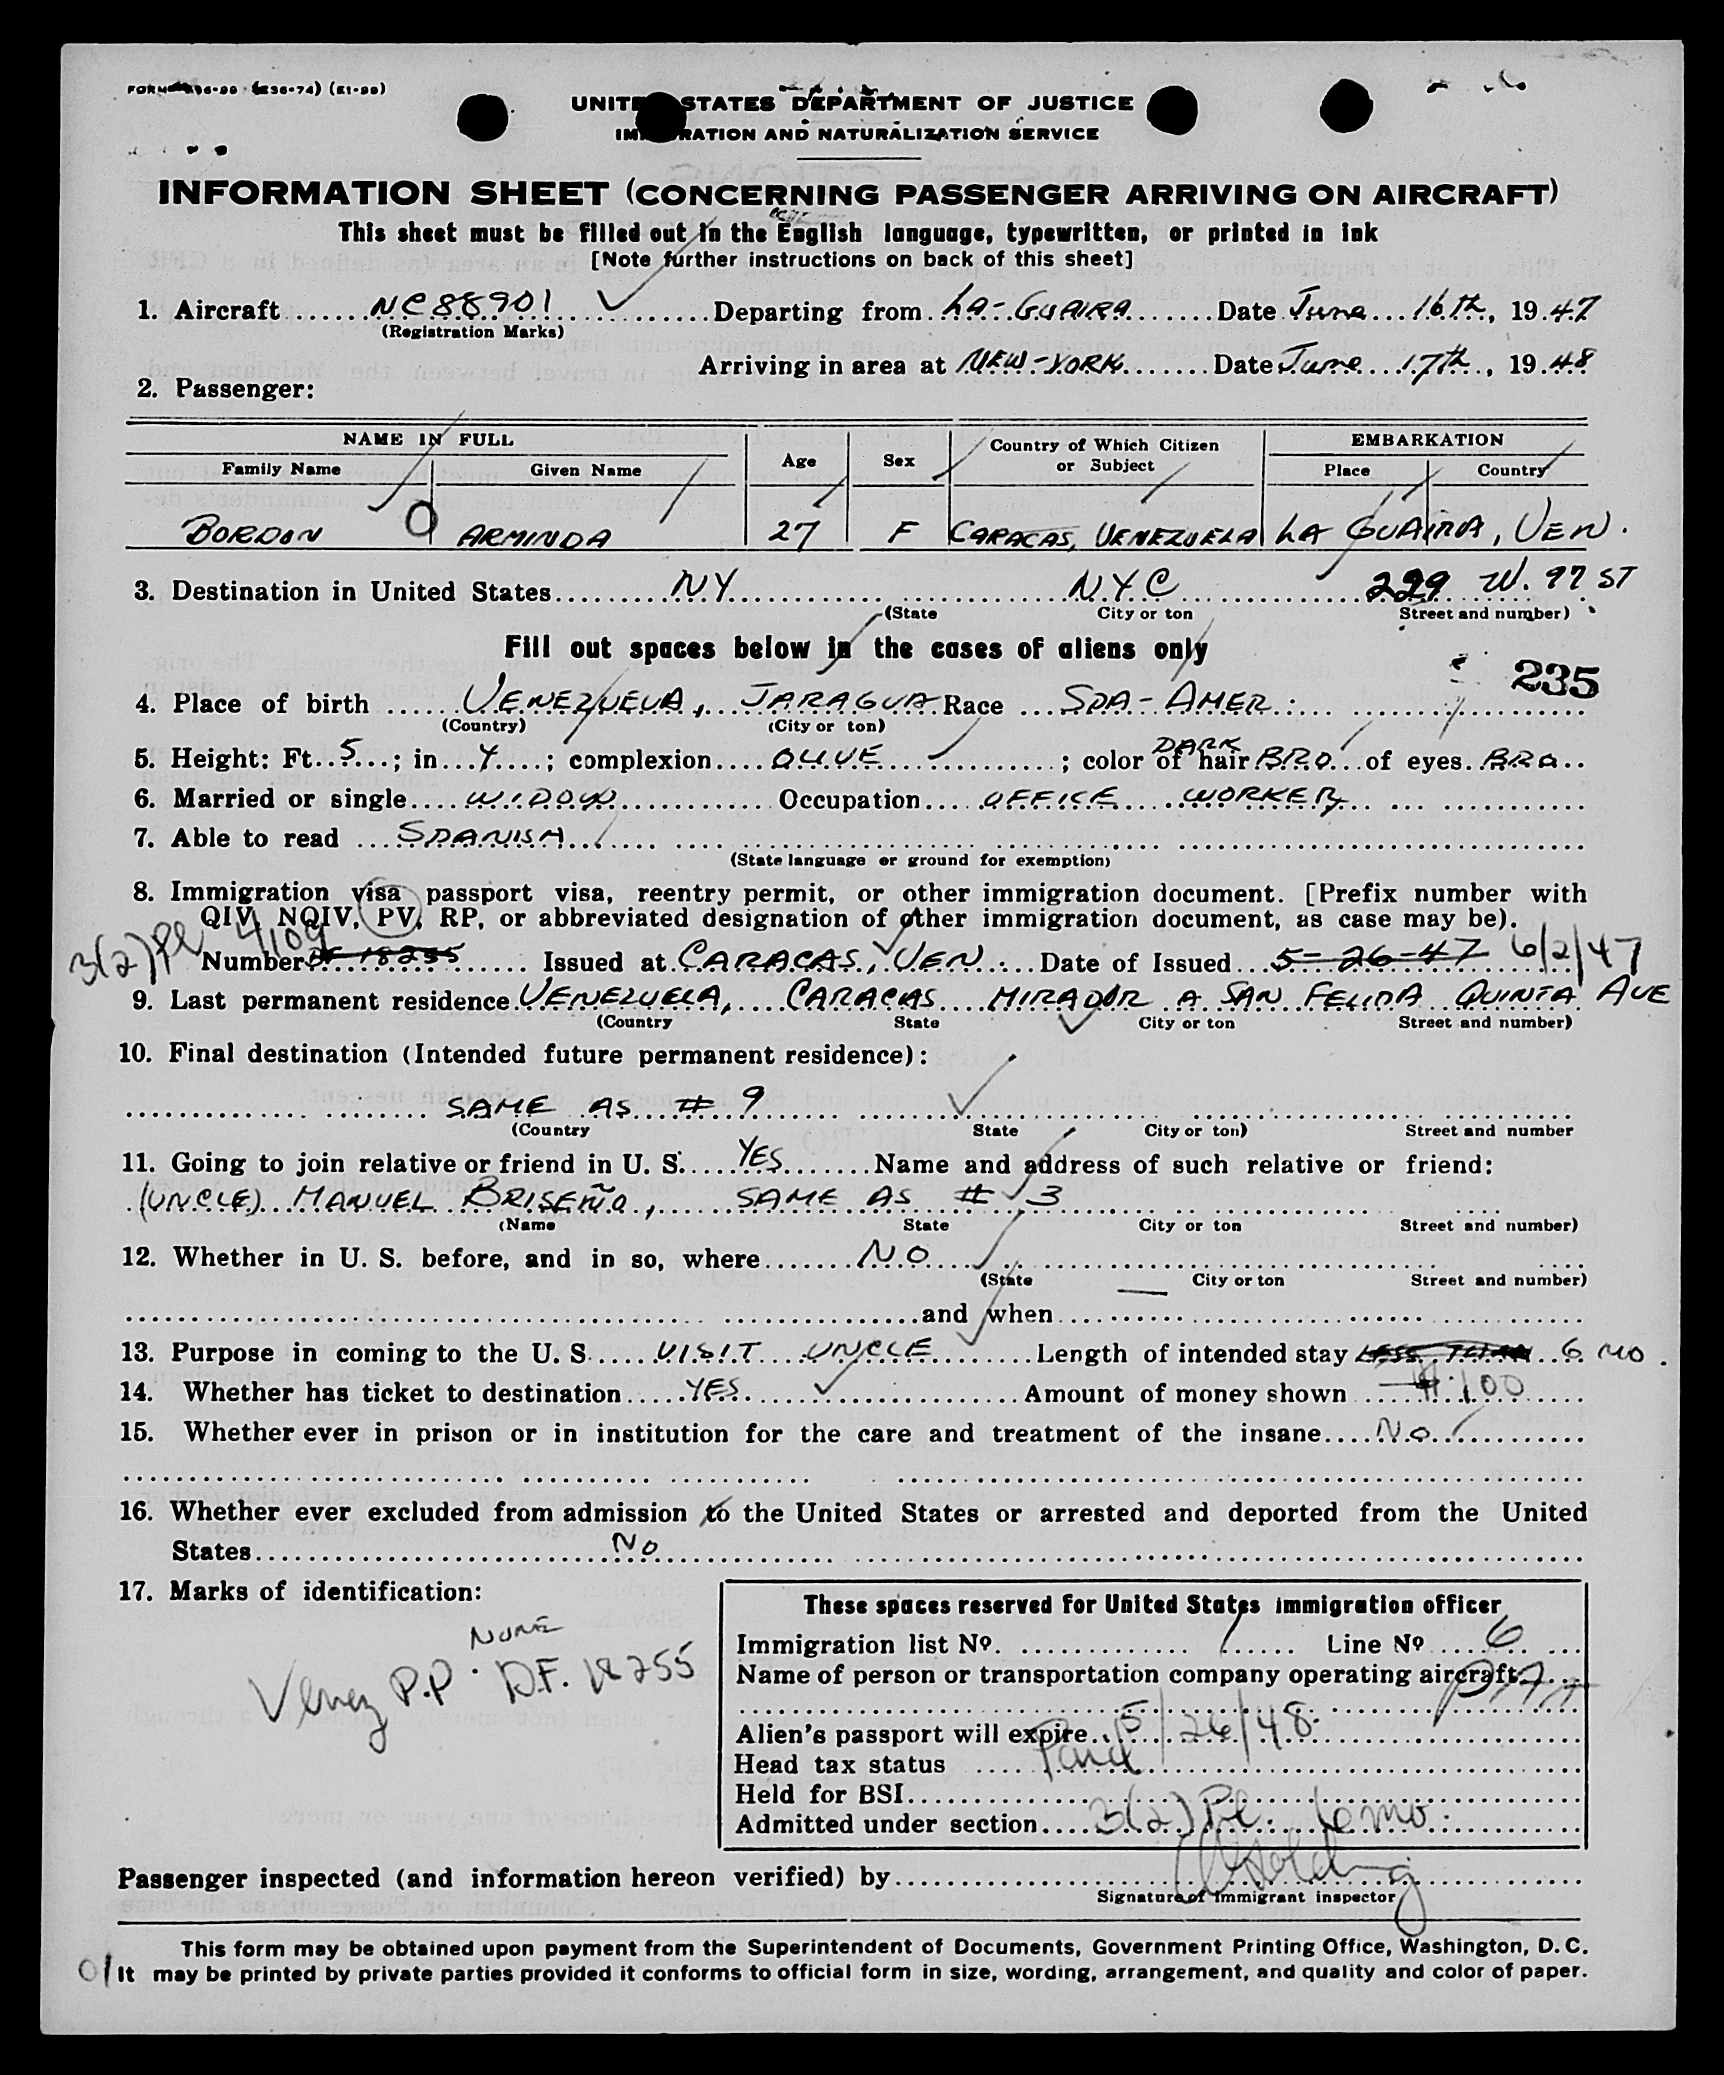 UNITED STATES DEPARTMENT OF JUSTICE
IMMIGRATION AND NATURALIZATION SERVICE
INFORMATION SHEET (CONCERNING PASSENGER ARRIVING ON AIRCRAFT)
This sheet must be filled out in the English language, typewritten, or printed in ink
[Note further instructions on back of this sheet]
1. Aircraft NC88901 Departing from LA-GUAIRA Date June 16th, 1947
(Registration Marks)
Arriving in area at NEW-YORK Date June 17th, 1948
2. Passenger:
NAME IN FULL Age Sex Country of Which Citizen or Subject EMBARKATION
Family Name Given Name Place Country
BORDON O ARMINDA 27 F CARACAS, VENEZUELA LA GUAIRA, VEN.
3. Destination in United States NY NYC 229 W. 97 ST
(State City or ton Street and number)
Fill out spaces below in the cases of aliens only
235
4. Place of birth VENEZUELA, JARAGUA Race SPA-AMER.
(Country) (City or ton)
5. Height: Ft. 5; in 4; complexion OLIVE; color of hair DARK BRO. of eyes BRO
6. Married or single WIDOW Occupation OFFICE WORKER
7. Able to read SPANISH
(State language or ground for exemption)
8. Immigration visa passport visa, reentry permit, or other immigration document. [Prefix number with
QIV, NQIV, PV, RP, or abbreviated designation of other immigration document, as case may be).
3(2) Pl 4/109
Number Issued at CARACAS, VEN. Date of Issued 5-26-47 6/2/47
9. Last permanent residence VENEZUELA, CARACAS MIRADOR A SAN FELIPA QUINTA AVE
(Country State City or ton Street and number)
10. Final destination (Intended future permanent residence):
SAME AS # 9
(Country State City or ton) Street and number
11. Going to join relative or friend in U. S. YES Name and address of such relative or friend:
(UNCLE) MANUEL BRISEÑO, SAME AS # 3
(Name State City or ton Street and number)
12. Whether in U. S. before, and in so, where NO
(State City or ton Street and number)
and when
13. Purpose in coming to the U. S. VISIT UNCLE Length of intended stay LESS THAN 6 MO.
14. Whether has ticket to destination YES Amount of money shown $100
15. Whether ever in prison or in institution for the care and treatment of the insane No
16. Whether ever excluded from admission to the United States or arrested and deported from the United
States No
17. Marks of identification:
NONE
Venez P.P. D.F. 18255
These spaces reserved for United States immigration officer
Immigration list Nº. 1 Line Nº 6
Name of person or transportation company operating aircraft PAA
Alien's passport will expire 5/26/48
Head tax status Paid
Held for BSI
Admitted under section 3(2) Pl. 6 mo.
Passenger inspected (and information hereon verified) by
Signature of immigrant inspector
This form may be obtained upon payment from the Superintendent of Documents, Government Printing Office, Washington, D. C.
It may be printed by private parties provided it conforms to official form in size, wording, arrangement, and quality and color of paper.